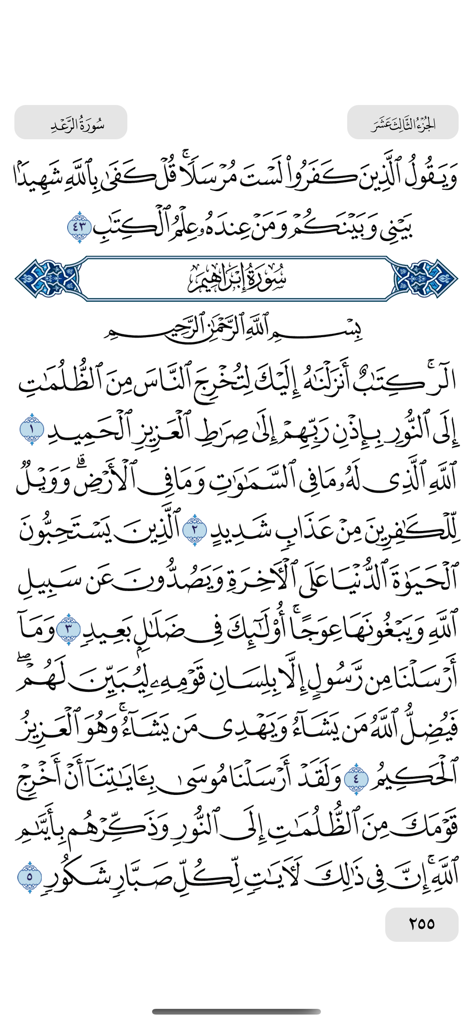 الجُزْءُ الثَّالِثَ عَشَرَ
سُورَةُ الرَّعْدِ
وَيَقُولُ ٱلَّذِينَ كَفَرُواْ لَسْتَ مُرْسَلٗاۚ قُلۡ كَفَىٰ بِٱللَّهِ شَهِيدَۢا
بَيۡنِي وَبَيۡنَكُمۡ وَمَنۡ عِندَهُۥ عِلۡمُ ٱلۡكِتَٰبِ ٤٣
سُورَةُ إِبۡرَاهِيمَ
بِسۡمِ ٱللَّهِ ٱلرَّحۡمَٰنِ ٱلرَّحِيمِ
الٓرۚ كِتَٰبٌ أَنزَلۡنَٰهُ إِلَيۡكَ لِتُخۡرِجَ ٱلنَّاسَ مِنَ ٱلظُّلُمَٰتِ
إِلَى ٱلنُّورِ بِإِذۡنِ رَبِّهِمۡ إِلَىٰ صِرَٰطِ ٱلۡعَزِيزِ ٱلۡحَمِيدِ ١
ٱللَّهِ ٱلَّذِي لَهُۥ مَا فِي ٱلسَّمَٰوَٰتِ وَمَا فِي ٱلۡأَرۡضِۗ وَوَيۡلٞ
لِّلۡكَٰفِرِينَ مِنۡ عَذَابٖ شَدِيدٍ ٢ ٱلَّذِينَ يَسۡتَحِبُّونَ
ٱلۡحَيَوٰةَ ٱلدُّنۡيَا عَلَى ٱلۡأٓخِرَةِ وَيَصُدُّونَ عَن سَبِيلِ
ٱللَّهِ وَيَبۡغُونَهَا عِوَجًاۚ أُوْلَٰٓئِكَ فِي ضَلَٰلِۭ بَعِيدٖ ٣ وَمَآ
أَرۡسَلۡنَا مِن رَّسُولٍ إِلَّا بِلِسَانِ قَوۡمِهِۦ لِيُبَيِّنَ لَهُمۡۖ
فَيُضِلُّ ٱللَّهُ مَن يَشَآءُ وَيَهۡدِي مَن يَشَآءُۚ وَهُوَ ٱلۡعَزِيزُ
ٱلۡحَكِيمُ ٤ وَلَقَدۡ أَرۡسَلۡنَا مُوسَىٰ بِـَٔايَٰتِنَآ أَنۡ أَخۡرِجۡ
قَوۡمَكَ مِنَ ٱلظُّلُمَٰتِ إِلَى ٱلنُّورِ وَذَكِّرۡهُم بِأَيَّىٰمِ
ٱللَّهِۚ إِنَّ فِي ذَٰلِكَ لَأٓيَٰتٖ لِّكُلِّ صَبَّارٖ شَكُورٖ ٥
٢٥٥